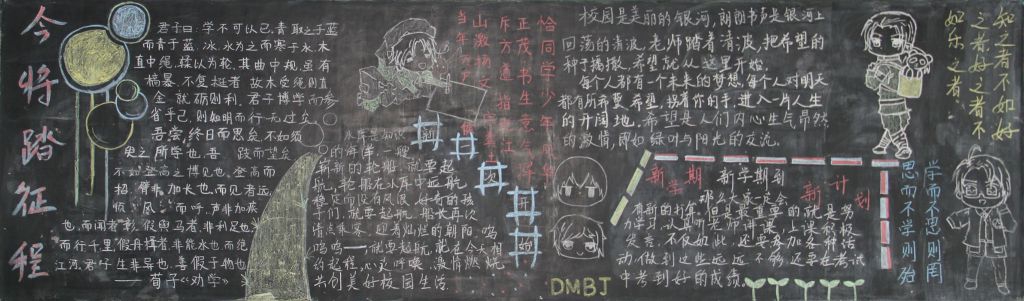 今将踏征程
君子曰：学不可以已，青取之于蓝
而青于蓝，冰，水为之而寒于水。木
直中绳，輮以为轮，其曲中规。虽有
槁暴，不复挺者
故木受绳则直
金就砺则利，君子博学而参
省乎己，则知明而行无过矣
吾尝终日而思矣，不如须
臾之所学也，吾
跂而望矣
不如登高之博见也，登高而
招，臂非加长也，而见者远
顺风而呼，声非加疾
也，而闻者彰，假舆马者，非利足也
而行千里，假舟楫者，非能水也，而绝
江河，君子生非异也，善假于物也
——荀子《劝学》
恰同学少年，风华
正茂，书生意气，挥
斥方遒，指
江
山，激扬文字，粪土
当年万户
校园是美丽的银河，朗朗书声是银河上
回荡的清波。老师踏着清波，把希望的
种子播撒，希望就从这里开始。
每个人都有一个未来的梦想，每个人对明天
都有所希望，希望，拐着你的手，进入一片人生
的开阔地，希望是人们内心生气昂然
的激情，即如绿叶与阳光的交流。
的海洋，一艘
崭新的轮船，就要起
航，轮船在水库中远航
好奇的孩
子们，就要起航，船长再次
请点乘客，迎着灿烂的朝阳，呜
呜呜——就要起航，就在今天相
约起程，心灵呼唤，激情燃烧
共创美好校园生活
新
学
期
开
始
新学期
新计划
新学期到
那么大家一定会
有新的打算，但是最重要的就是努
力学习，认真听老师讲课，上课积极
发言，不仅如此，还要参加各种活
动，做到这些远远不够还要在考试
中考到好的成绩。
DMBJ
知之者不如好
之者，好之者不
如乐之者
学而不思则罔
思而不学则殆